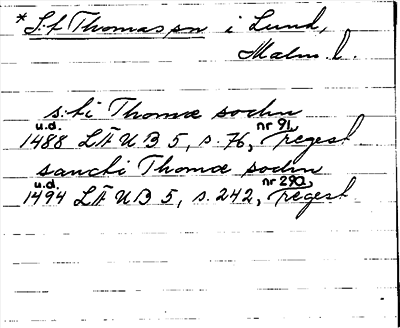 * S:t Thomas sn i Lund,
Malm. l.
s:ti Thomæ sodin
u.d. nr 91,
1488 LÄUB 5, s. 76, regest
sancti Thomæ sodin
u.d. nr 290,
1494 LÄUB 5, s. 242, regest